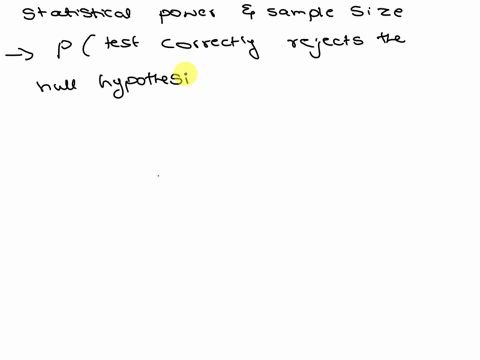 Statistical power & sample size
→ P ( test correctly rejects the
null hypothesi